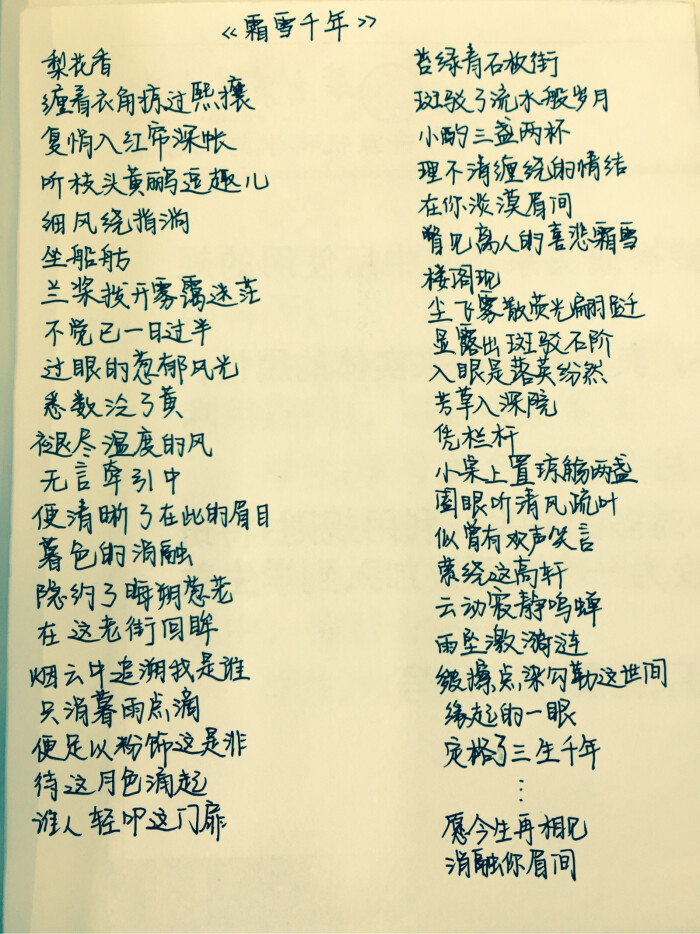 《霜雪千年》
梨花香
缠着衣角掠过熙攘
复悄入红帘深帐
听枝头黄鹂逗趣儿
细风绕指淌
坐船舫
兰桨拨开雾霭迷茫
不觉已一日过半
过眼的葱郁风光
悉数泛了黄
褪尽温度的风
无言牵引中
便清晰了在此的眉目
暮色的消融
隐约了晦朔葱茏
在这老街回眸
烟云中追溯我是谁
只消暮雨点滴
便足以粉饰这是非
待这月色滴起
谁人轻叩这门扉
苔绿青石板街
斑驳了流水般岁月
小酌三盏两杯
理不清缠绕的情结
在你淡漠眉间
瞥见离人的喜悲霜雪
楼阁现
尘飞雾散荧光翩跹
显露出斑驳石阶
入眼是落英纷然
芳草入深院
凭栏杆
小桌上置琼觞两盏
阖眼听清风疏叶
似曾有欢声笑言
萦绕这高轩
云动寂静鸣蝉
雨坠激漪涟
皴擦点染勾勒这世间
缘起的一眼
定格了三生千年
⋮
愿今生再相见
消融你眉间